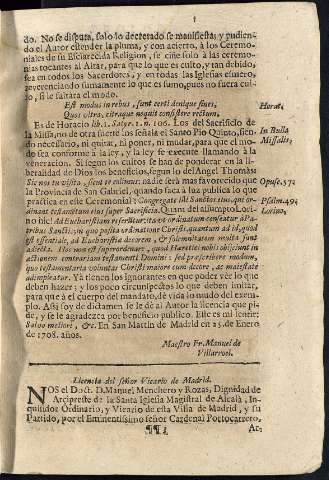 do. No se disputa, solo lo decretado se manifiesta; y pudien-
do el Autor estender la pluma, y con acierto, à los Ceremo-
niales de su Esclarecida Religion, se ciñe solo à las ceremo-
nias tocantes al Altar, para que lo que es culto, y tan debido,
sea en todos los Sacerdotes, y en todas las Iglesias esmero,
reverenciando sumamente lo que es sumo, pues no fuera cul-
to, si le faltàra el modo.
Est modus in rebus, sunt certi denique fines, Horat.
Quos ultra, citraque nequit consistere rectum,
Es de Horacio lib. 1. Satyr. 1. n. 106. Los del Sacrificio de
la Missa, no de otra fuerte los señala el Santo Pio Quinto, sien- In Bulla
do necessario, ni quitar, ni poner, ni mudar, para que el mo- Missalis;
do sea conforme à la ley, y la ley se execute llamando à la
veneracion. Si segun los cultos se han de ponderar en la li-
beralidad de Dios los beneficios, segun lo del Angel Thomàs:
Sic nos tu visita, sicut te colimus: nadie serà mas favorecido que Opusc. 57:
la Provincia de San Gabriel, quando saca à luz publica lo que
practica en este Ceremonial: Congregate illi Sanctos eius, qui or- Psalm. 49;
dinant testamentum eius super Sacrificia. Quam ad assumpto Lori- Lorino,
no hic: ad Eucharistiam referuntur, &
Sanctis, in quo posita ordinatione Christi, quantum ad id, quod
est essentiale, ad Eucharistiæ decorem, & solemnitatem multa sunt
adiecta. Hoc non est superordinare, quod Hæretici nobis obijciunt in
actionem contrariam testamenti Domini: sed præscribere modum,
quo testamentaria voluntas Christi maiore cum decore, ac maiestate
adimpleatur. Yà tienen los ignorantes en que poder vèr lo que
deben hazer; y los poco circunspectos lo que deben imitar,
para que à el cuerpo del mandato, de vida lo nudo del exem-
plo. Assi soy de dictamen se le dè al Autor la licencia que pi-
de, y se le agradezca por beneficio publico. Este es mi sentir:
Salvo meliori, &c. En San Martin de Madrid en 25. de Enero
de 1708. años.
Maestro Fr. Manuel de
Villarroel.
Licencia del señor Vicario de Madrid.
NOS el Doct. D. Manuel Menchero y Rozas, Dignidad de
Arcipreste de la Santa Iglesia Magistral de Alcalà, In-
quisidor Ordinario, y Vicario de esta Villa de Madrid, y su
Partido, por el Eminentissimo señor Cardenal Portocarrero,
¶¶¶ Ar-